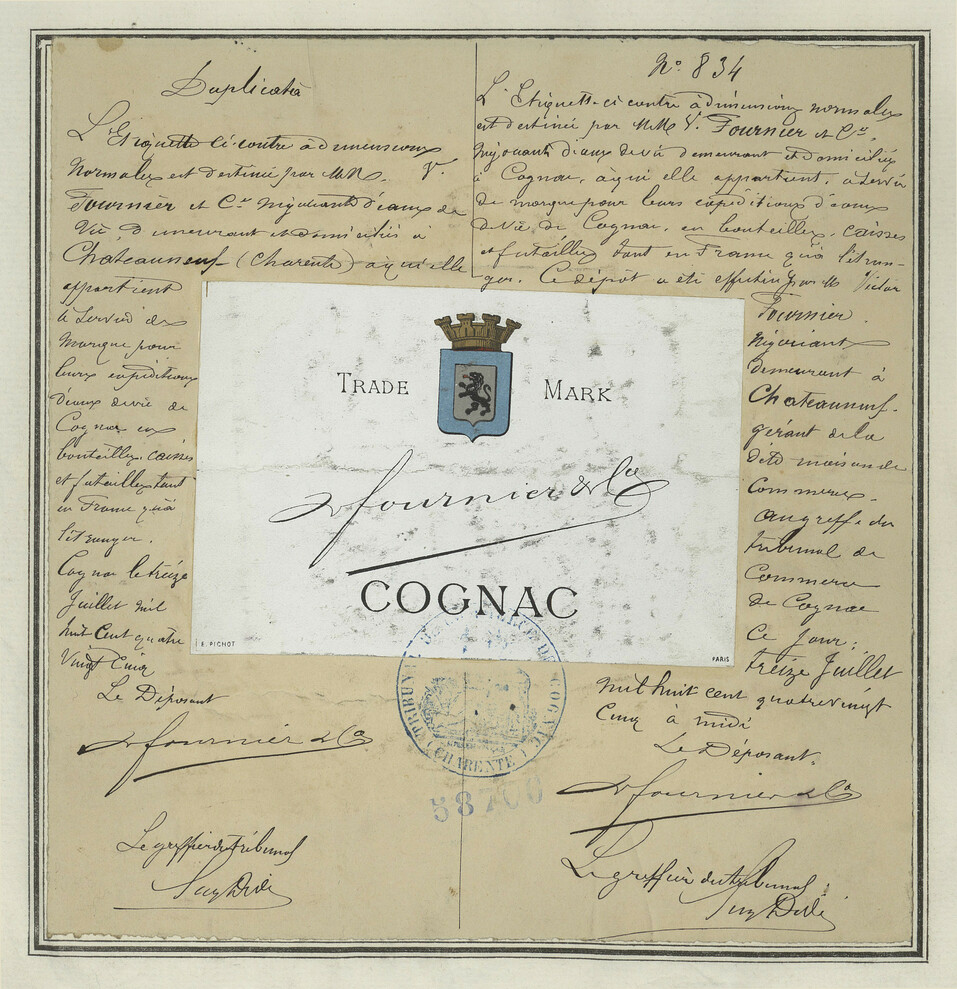 Duplicata
L'Etiquette ci-contre à dimensions
normales est destinée par MM. V.
Fournier et Cie Négociants d'eaux de
Vie, demeurant et domiciliés à
Chateauneuf (Charente) à qui elle
appartient
à servir de
Marque pour
leurs expéditions
d'eaux de vie de
Cognac en
bouteilles, caisses
et futailles tant
en France qu'à
l'étranger.
Cognac le treize
Juillet mil
huit cent quatre
Vingt Cinq
Le Déposant
V Fournier & Co
Le greffier du Tribunal
No 834
L'Etiquette ci contre à dimensions normales
est destinée par MM V. Fournier et Cie.
Négociants d'eaux de vie demeurant et domiciliés
à Cognac, à qui elle appartient, à servir
de marque pour leurs expéditions d'eaux
de vie, de Cognac, en bouteilles, caisses
et futailles tant en France qu'à l'étran-
ger. Ce dépôt a été effectué par M Victor
Fournier
Négociant
demeurant à
Chateauneuf.
gérant de la
dite maison de
Commerce.
au greffe du
tribunal de
Commerce
de Cognac
Ce jour,
treize Juillet
mil huit cent quatre vingt
Cinq à midi
Le Déposant.
V Fournier & Co
Le greffier du Tribunal
TRADE MARK
V Fournier & Co
COGNAC
E. PICHOT
PARIS
TRIBUNAL DE COMMERCE DE COGNAC
(CHARENTE)
58700